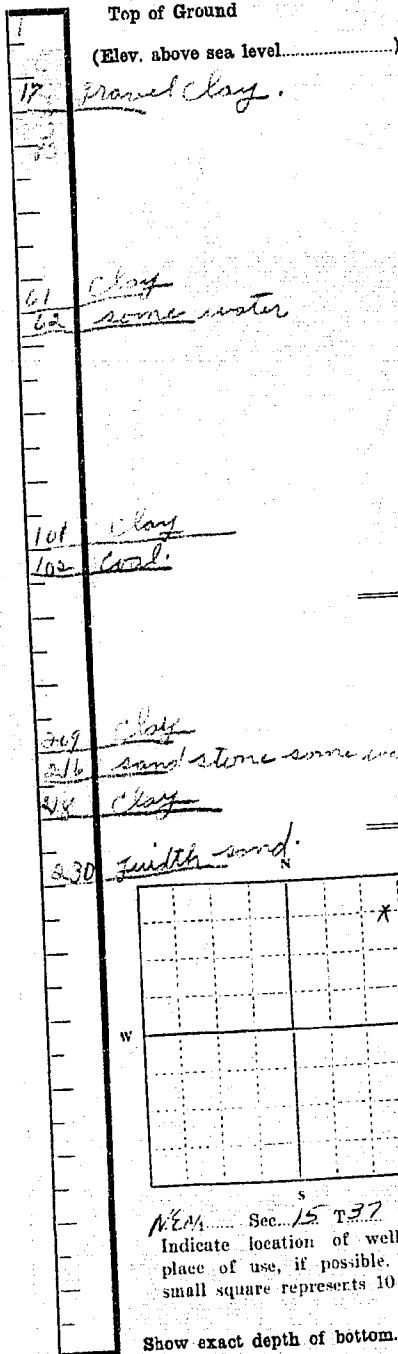 Top of Ground
1
(Elev. above sea level....................)
17 Gravel Clay.
61 Clay
62 some water
101 Clay
102 Coal.
209 Clay
216 sand stone some
218 Clay
230 sand.
N
W
S
NE¼ Sec. 15 T 37
Indicate location of well
place of use, if possible.
small square represents 10
Show exact depth of bottom.